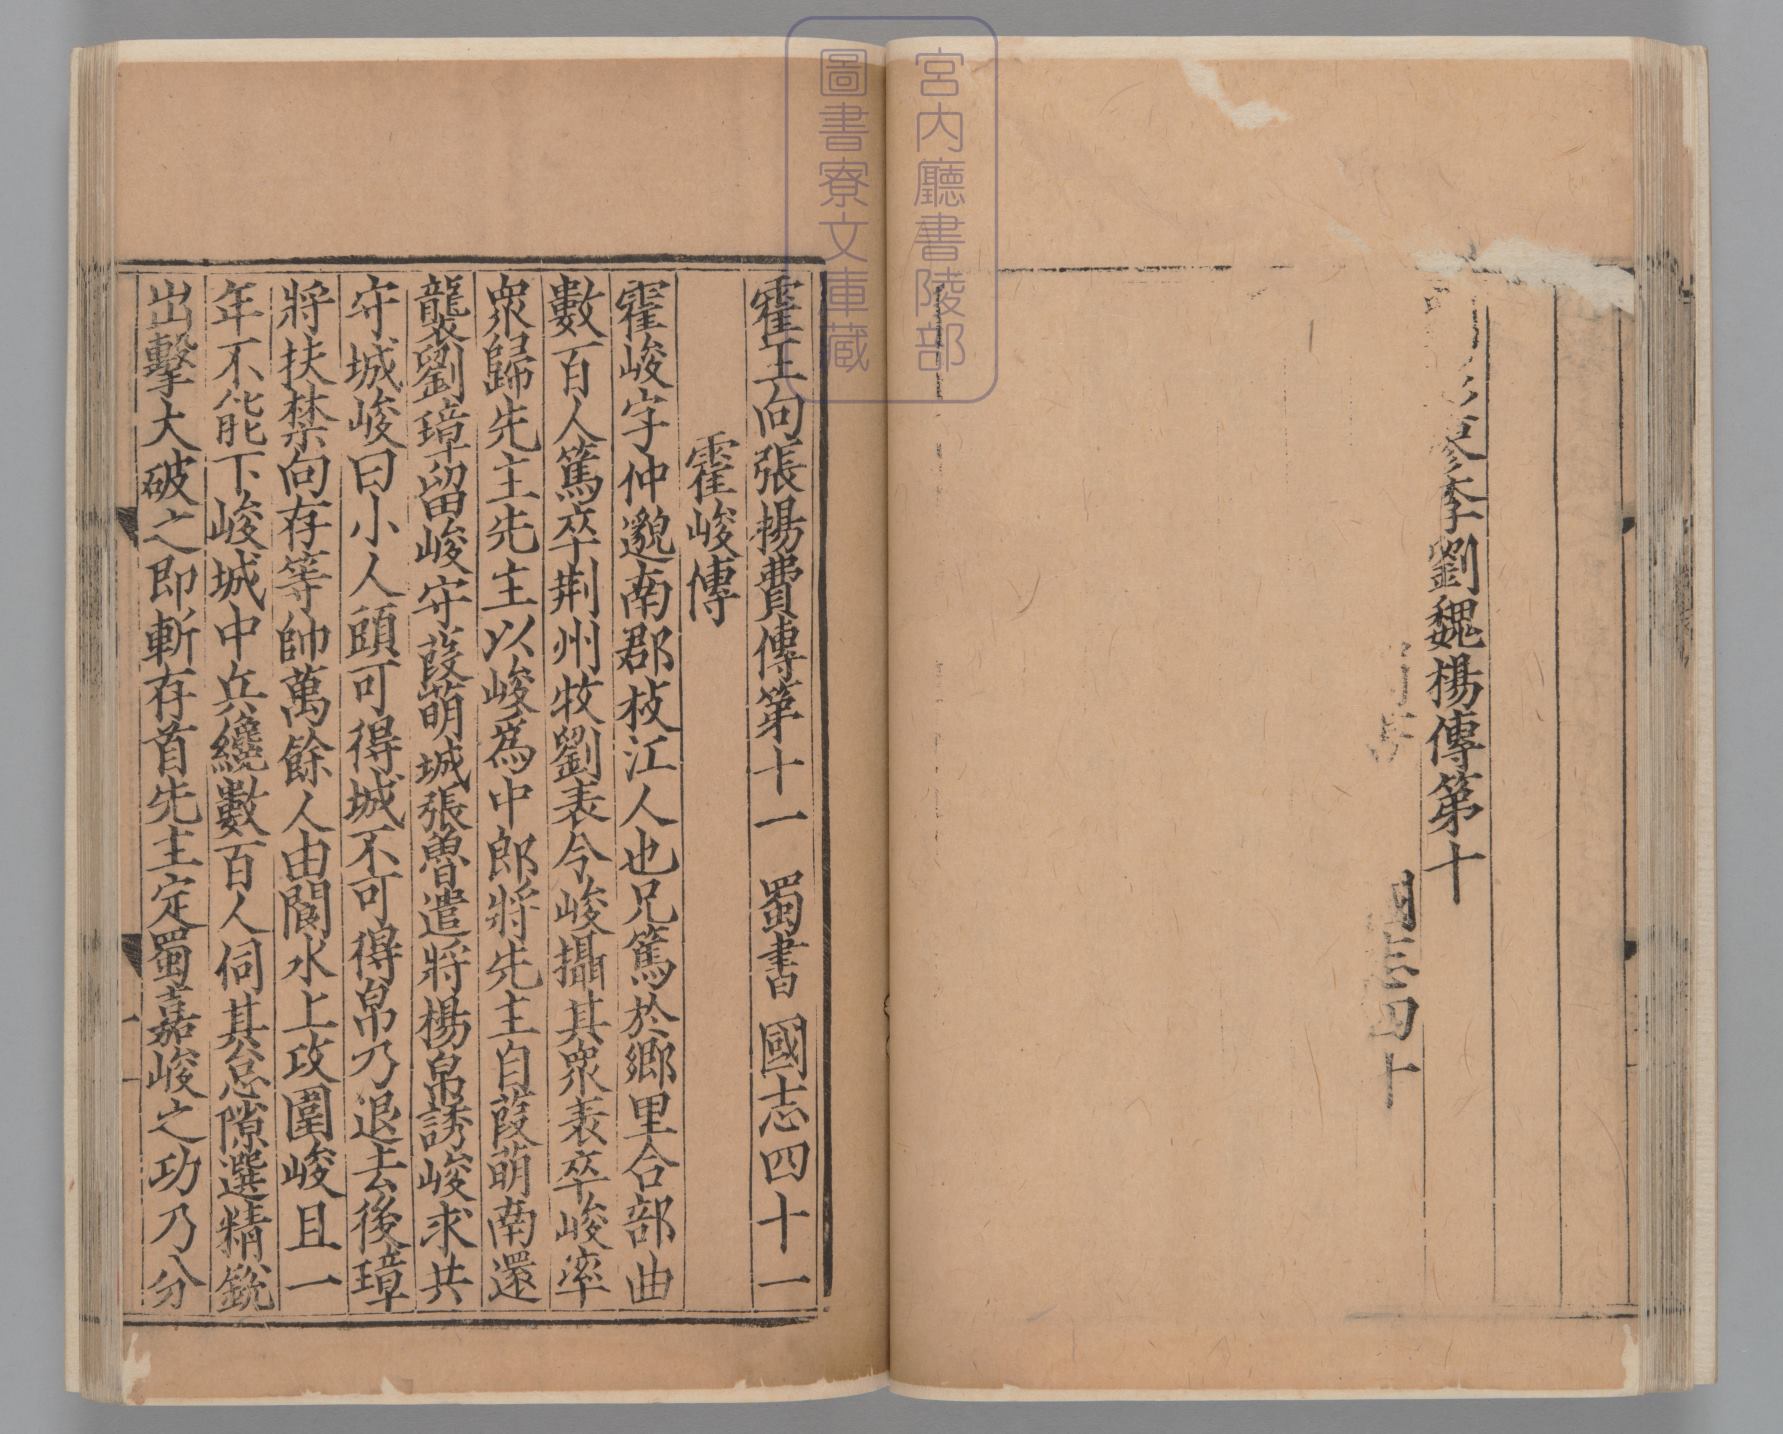 彭廖李劉魏楊傳第十
國志四十
霍王向張楊費傳第十一　蜀書　國志四十一
霍峻傳
霍峻字仲邈南郡枝江人也兄篤於鄉里合部曲
數百人篤卒荆州牧劉表令峻攝其衆表卒峻率
衆歸先主先主以峻爲中郎將先主自葭萌南還
襲劉璋留峻守葭萌城張魯遣將楊帛誘峻求共
守城峻曰小人頭可得城不可得帛乃退去後璋
將扶禁向存等帥萬餘人由閬水上攻圍峻且一
年不能下峻城中兵纔數百人伺其怠隙選精銳
出擊大破之即斬存首先主定蜀嘉峻之功乃分
宮内廳書陵部
圖書寮文庫蔵